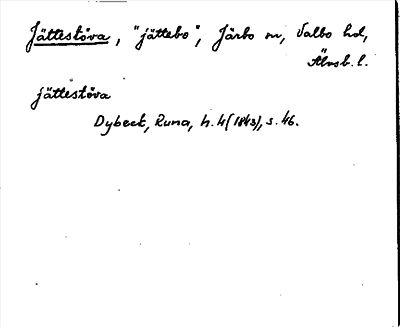 Jättestöva, "jättebo", Järbo sn, Valbo hd,
Älvsb. l.
jättestöva
Dybeck, Runa, h. 4 (1843), s. 46.